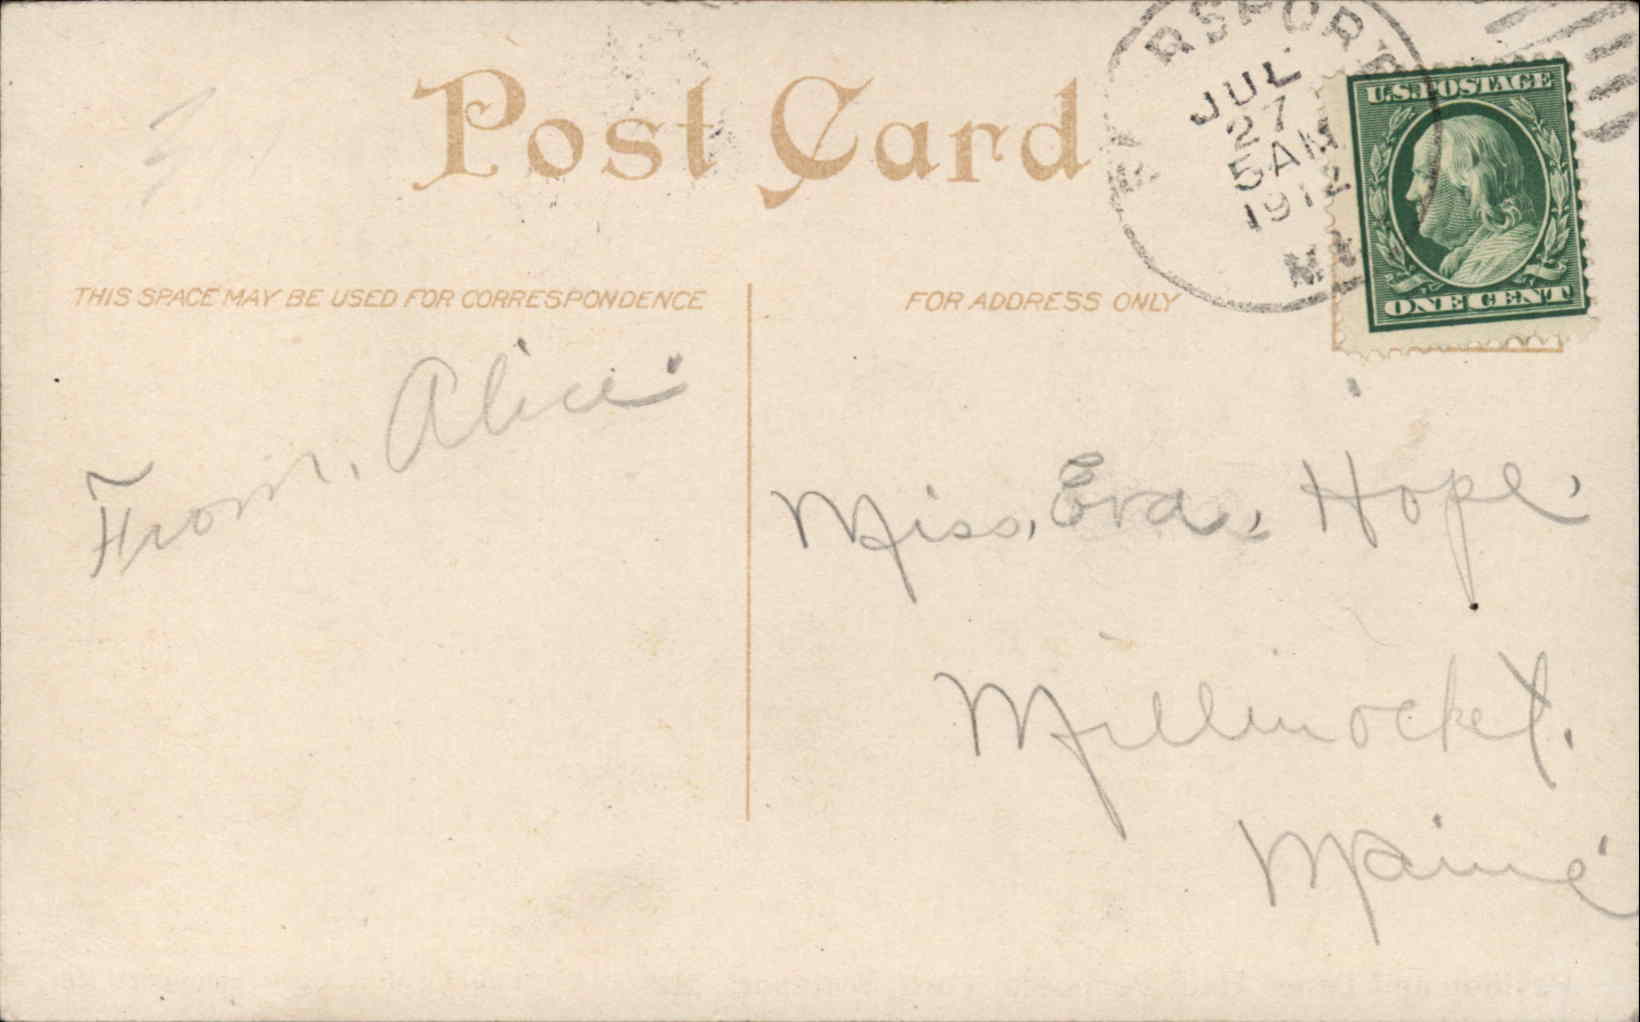 Post Card
RSPORT
JUL
27
5 AM
1912
U.S. POSTAGE
ONE CENT
THIS SPACE MAY BE USED FOR CORRESPONDENCE
FOR ADDRESS ONLY
From, Alice
Miss, Eva, Hope,
Millinocket.
Maine